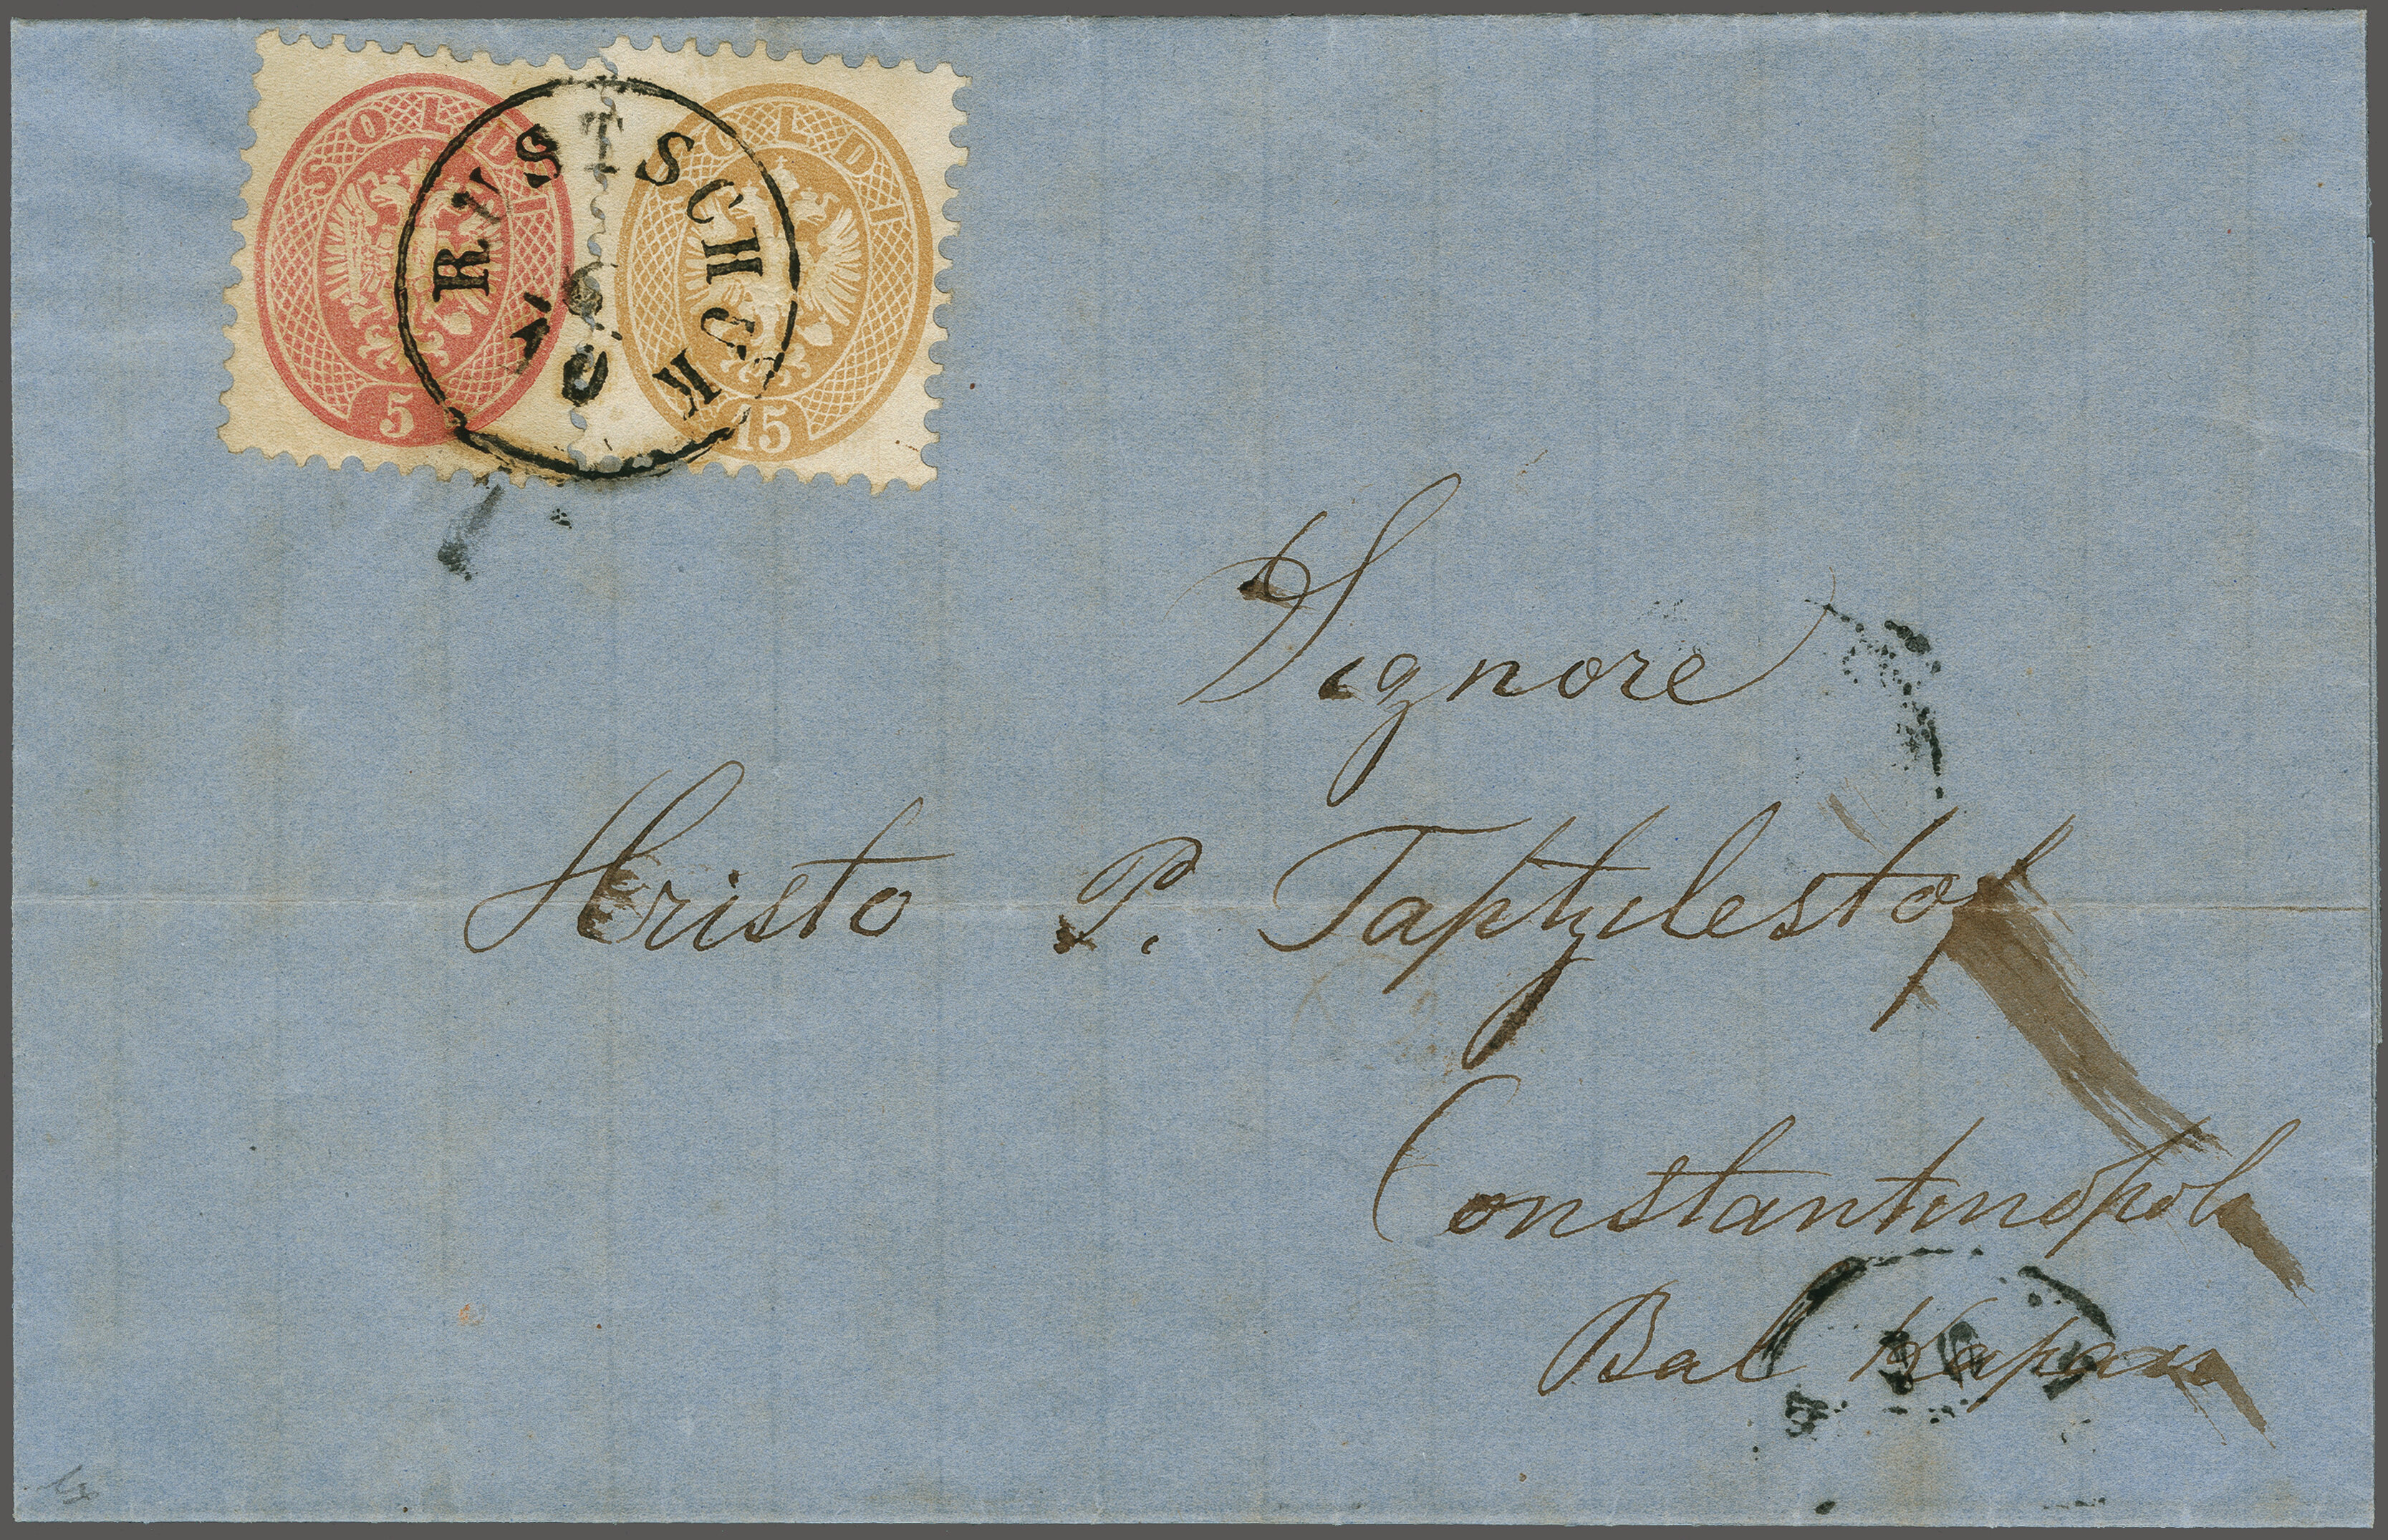 SOLDI
5
SOLDI
15
RUSTSCHUK
Signore
Hristo P. Taptylestof
Constantinopoli
Bal Kapan